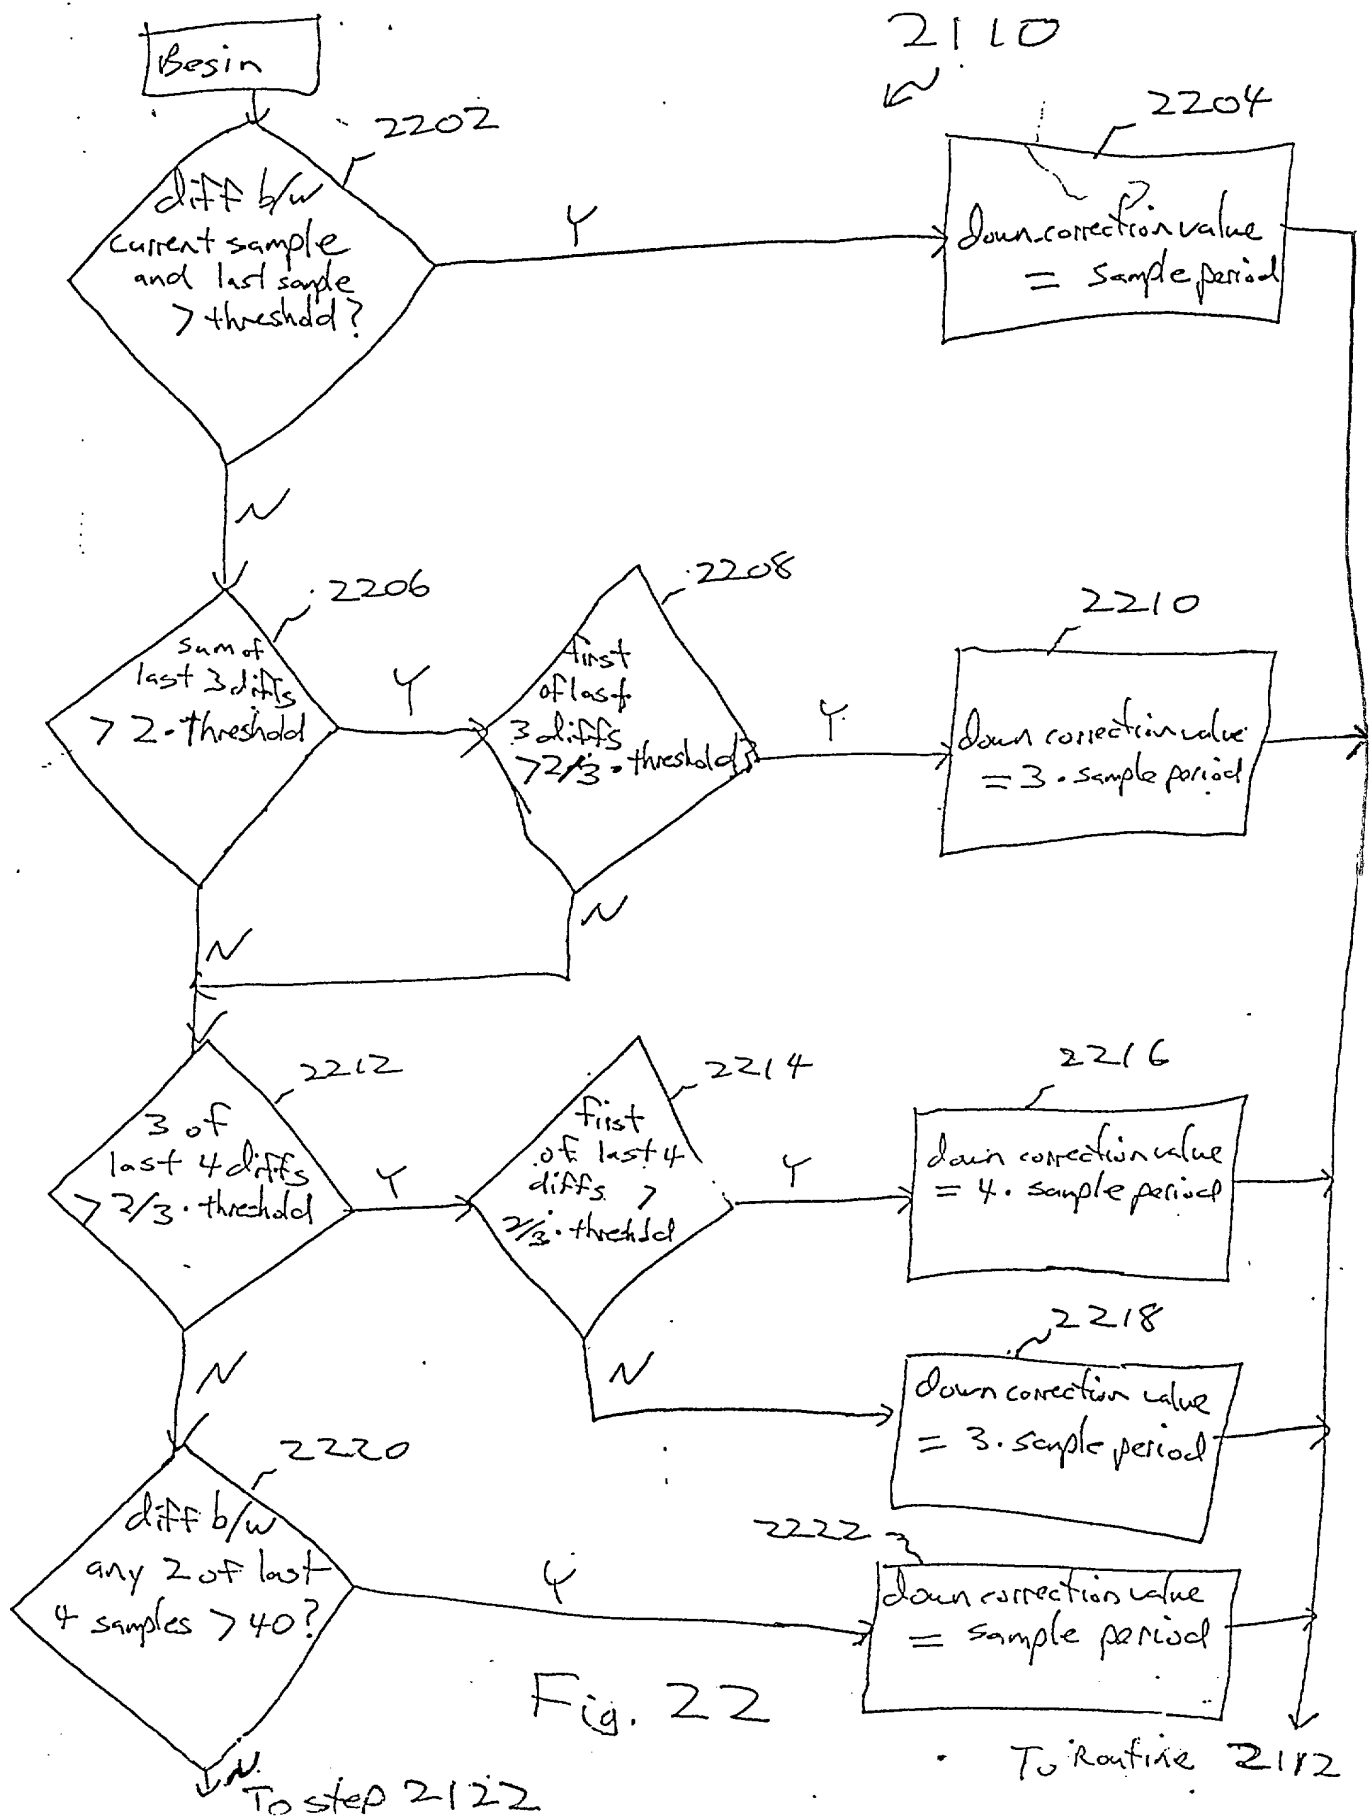 2110
Begin
2202
2204
diff b/w
current sample
and last sample
> threshold?
Y
down correction value
= sample period
N
2206
2208
2210
sum of
last 3 diffs
> 2 · threshold
Y
first
of last
3 diffs
> 2/3 · threshold?
Y
down correction value
= 3 · sample period
N
N
2212
2214
2216
3 of
last 4 diffs
> 2/3 · threshold
Y
first
of last 4
diffs >
2/3 · threshold
Y
down correction value
= 4 · sample period
N
N
2218
down correction value
= 3 · sample period
2220
2222
diff b/w
any 2 of last
4 samples > 40?
Y
down correction value
= sample period
N
Fig. 22
To step 2122
To Routine 2112